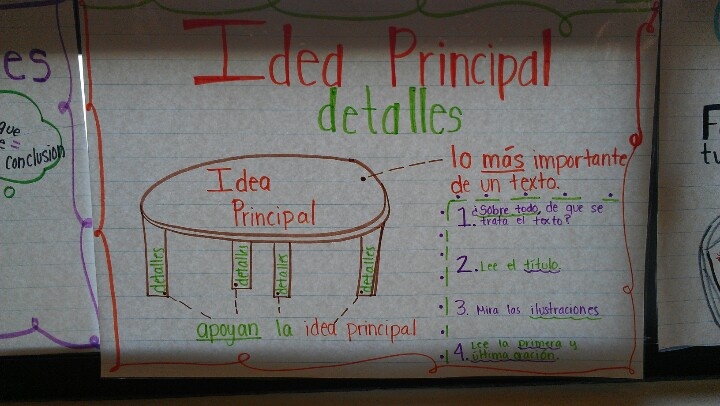 es
que
e =
conclusion
Idea Principal
detalles
Idea
Principal
detalles
detalles
detalles
detalles
apoyan la idea principal
lo más importante
de un texto.
1. ¿Sobre todo, de que se
trata el texto?
2. Lee el título
3. Mira las ilustraciones
4. Lee la primera y
última oración.
F
tu